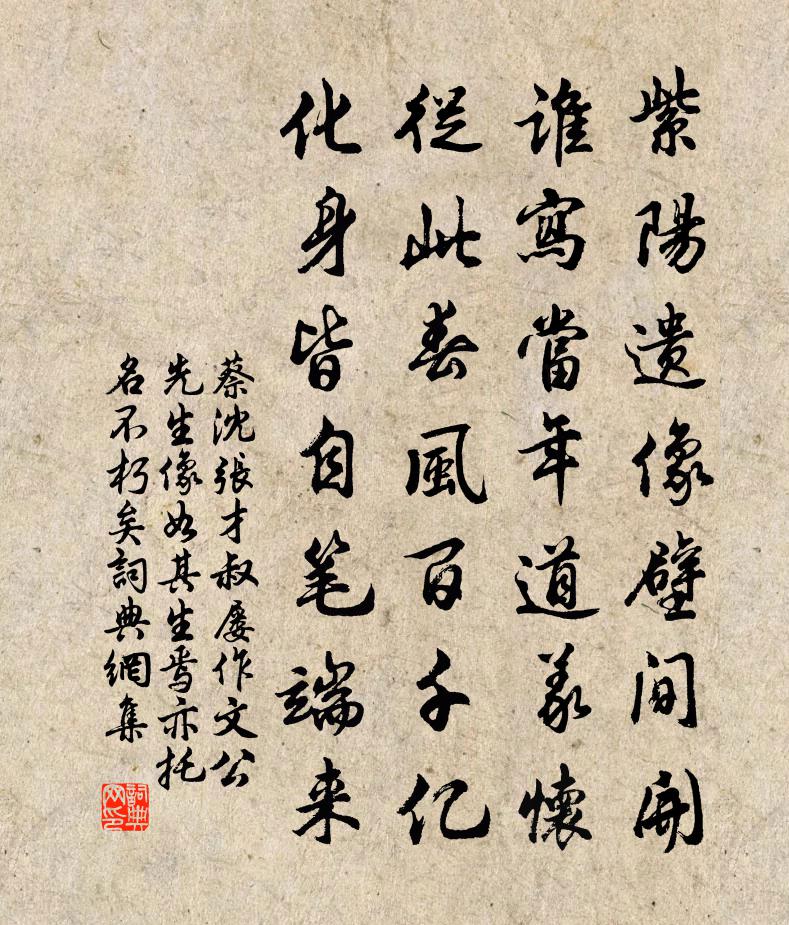 紫陽遺像壁间开
誰寫當年道義懷
從此春風百千亿
化身皆自笔端来
蔡沈張才叔屢作文公
先生像如其生焉亦托
名不朽矣詞典網集
詞典网印